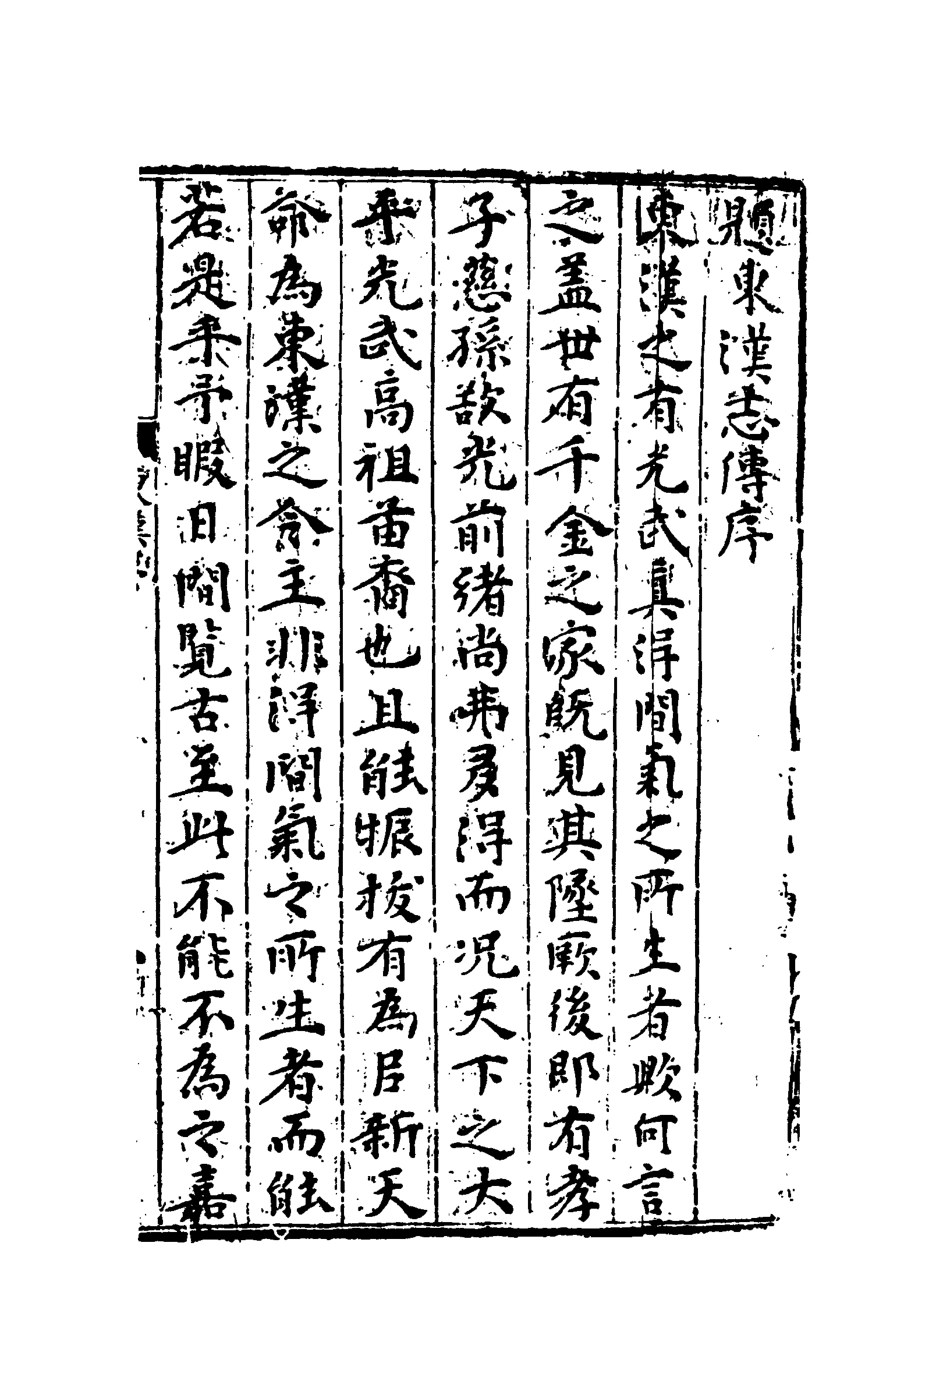 題東漢志傳序
東漢之有光武真得間氣之所生者歟何言
之蓋世有千金之家既見其墜厥後即有孝
子慈孫欲光前緒尚弗易得而况天下之大
乎光武高祖苗裔也且能振拔有為以新天
命為東漢之令主非得間氣之所生者而能
若是乎予暇日間覽古至此不能不為之嘉